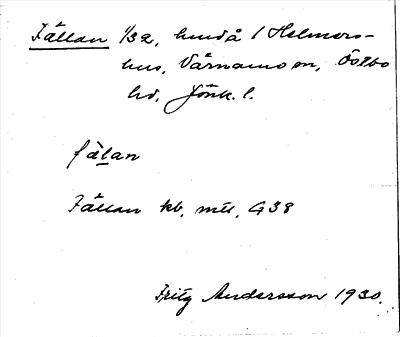 Fållan 1/32, hmd å / Helmers-
hus, Värnamo sn, Östbo
hd, Jönk. l.
fàlan
Fållan kb, mtl, G38
Fritz Andersson 1930.